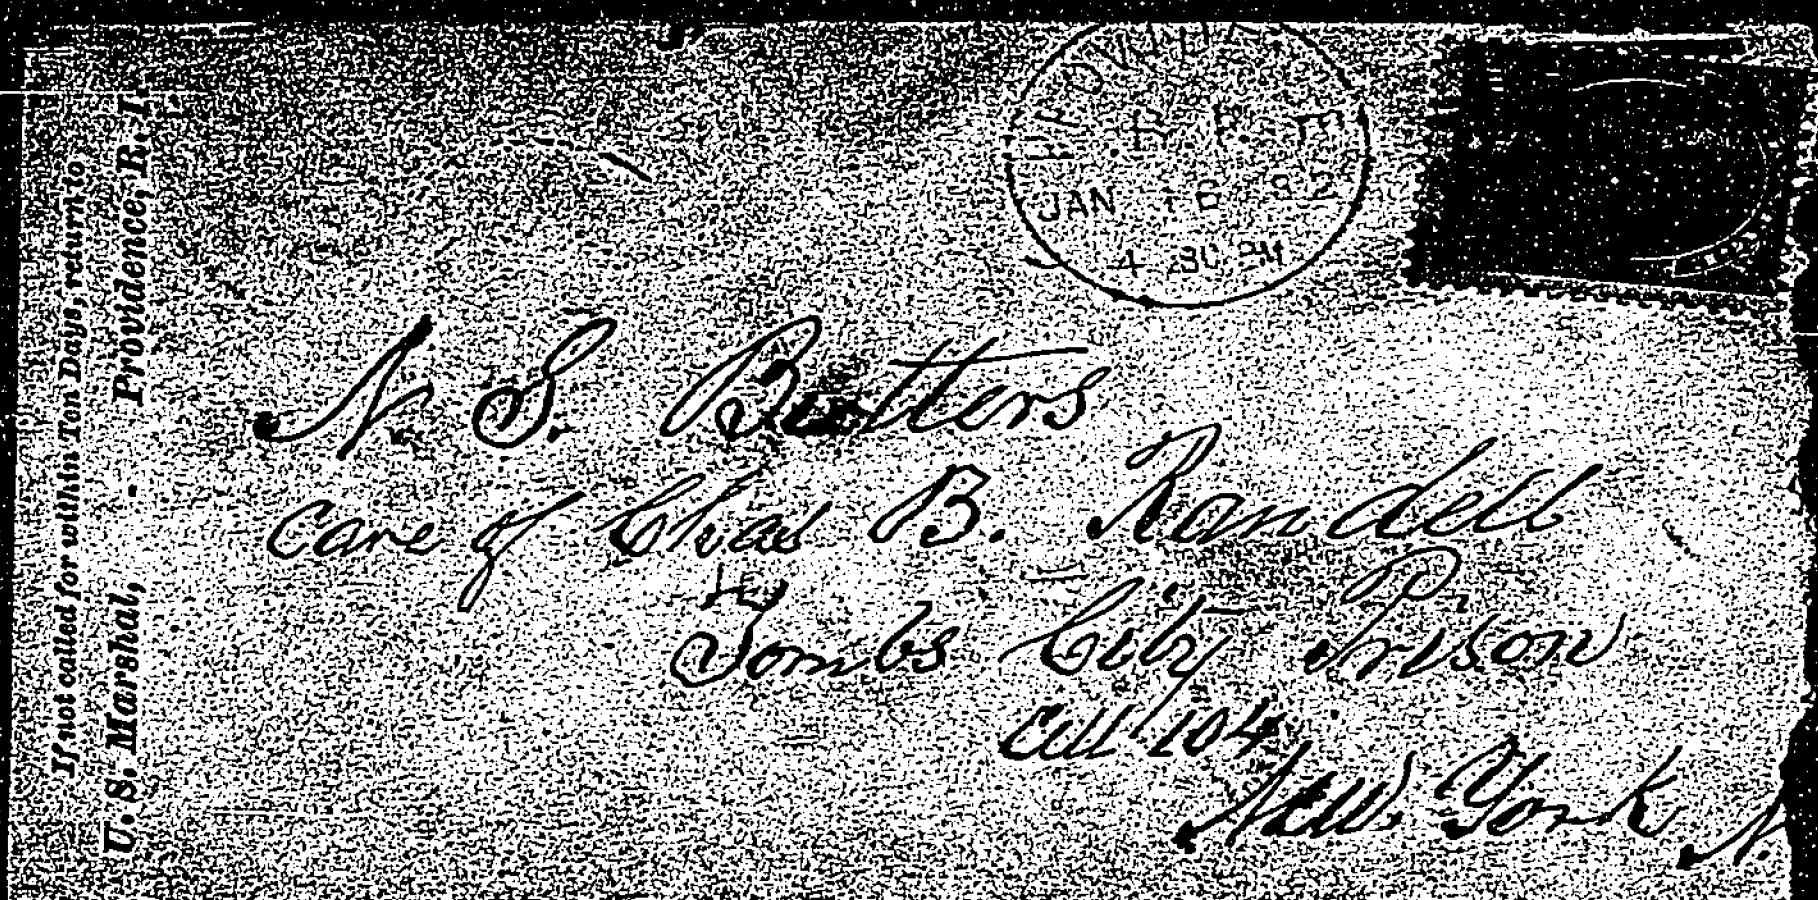 If not called for within Ten Days, return to
U. S. Marshal, - Providence, R. I.
JAN 16 8
4 30 PM
N. S. Butters
Care of Chas B. Randell
Tombs City Prison
Cell 104
New York N.